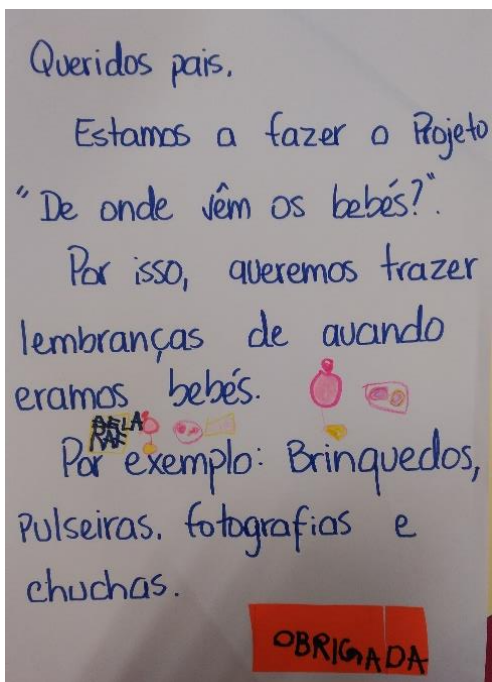 Queridos pais,
Estamos a fazer o Projeto
"De onde vêm os bebés?".
Por isso, queremos trazer
lembranças de quando
eramos bebés.
Por exemplo: Brinquedos,
Pulseiras, fotografias e
chuchas.
OBRIGADA